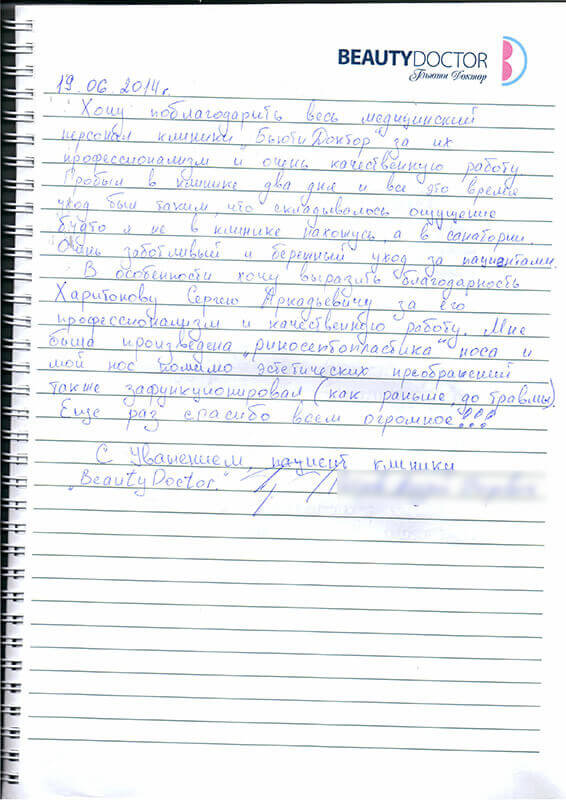 BEAUTYDOCTOR
Бьюти Доктор
19.06.2014г.
Хочу поблагодарить весь медицинский
персонал клиники „Бьюти Доктор" за их
профессионализм и очень качественную работу.
Пробыл в клинике два дня и все это время
уход был таким, что складывалось ощущение
будто я не в клинике нахожусь, а в санатории.
Очень заботливый и бережный уход за пациентами.
В особенности хочу выразить благодарность
Харитонову Сергею Аркадьевичу за его
профессионализм и качественную работу. Мне
была произведена „риносептопластика" носа и
мой нос помимо эстетических преображений
также зафункционировал (как раньше, до травмы).
Еще раз спасибо всем огромное!!!
С Уважением, пациент клиники
„Beauty Doctor."